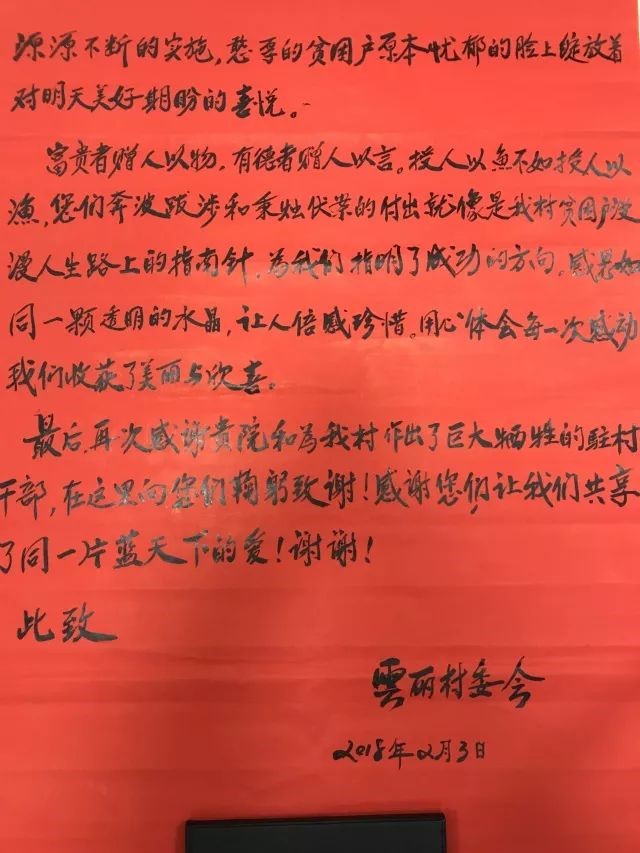 源源不断的实施,憨厚的贫困户原本忧郁的脸上绽放着
对明天美好期盼的喜悦。
富贵者赠人以物,有德者赠人以言。授人以鱼不如授人以
渔,您们奔波跋涉和秉烛伏案的付出就像是我村贫困户
漫人生路上的指南针,為我们指明了成功的方向。感恩如
同一颗透明的水晶,让人倍感珍惜。用心体会每一次感动
我们收获了美丽与欢喜。
最后,再次感谢贵院和為我村作出了巨大牺牲的驻村
干部,在这里向您们鞠躬致谢!感谢您们让我们共享
了同一片蓝天下的爱!谢谢!
此致
雲丽村委会
2018年2月3日